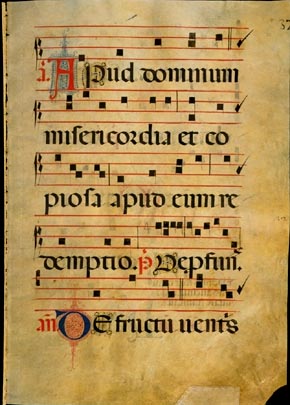 ã. Apud dominum
misericordia et co
piosa apud eum re
demptio. p̃. De pfun̄.
añ De fructu uent̃s